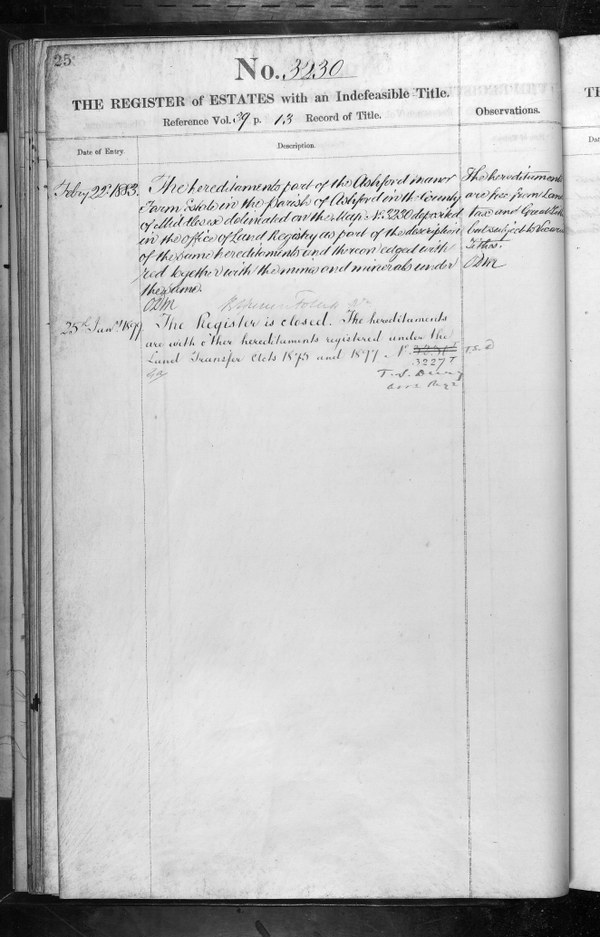 25
No. 3230
THE REGISTER of ESTATES with an Indefeasible Title.
Reference Vol. 39 p. 13 Record of Title.
Observations.
Date of Entry.
Description.
Feby 22d 1883.
The hereditaments part of the Ashford Manor
Farm Estate in the Parish of Ashford in the County
of Middlesex delineated on the Map No 3230 deposited
in the office of Land Registry as part of the description
of the same hereditaments and thereon edged with
red together with the mines and minerals under
the same.
The hereditaments
are free from Land
Tax and Great Tithe
but subject to Vicarial
Tithes.
25th Jany 1899
The Register is closed. The hereditaments
are with other hereditaments registered under the
Land Transfer Acts 1875 and 1897. No
3227
T.S.D